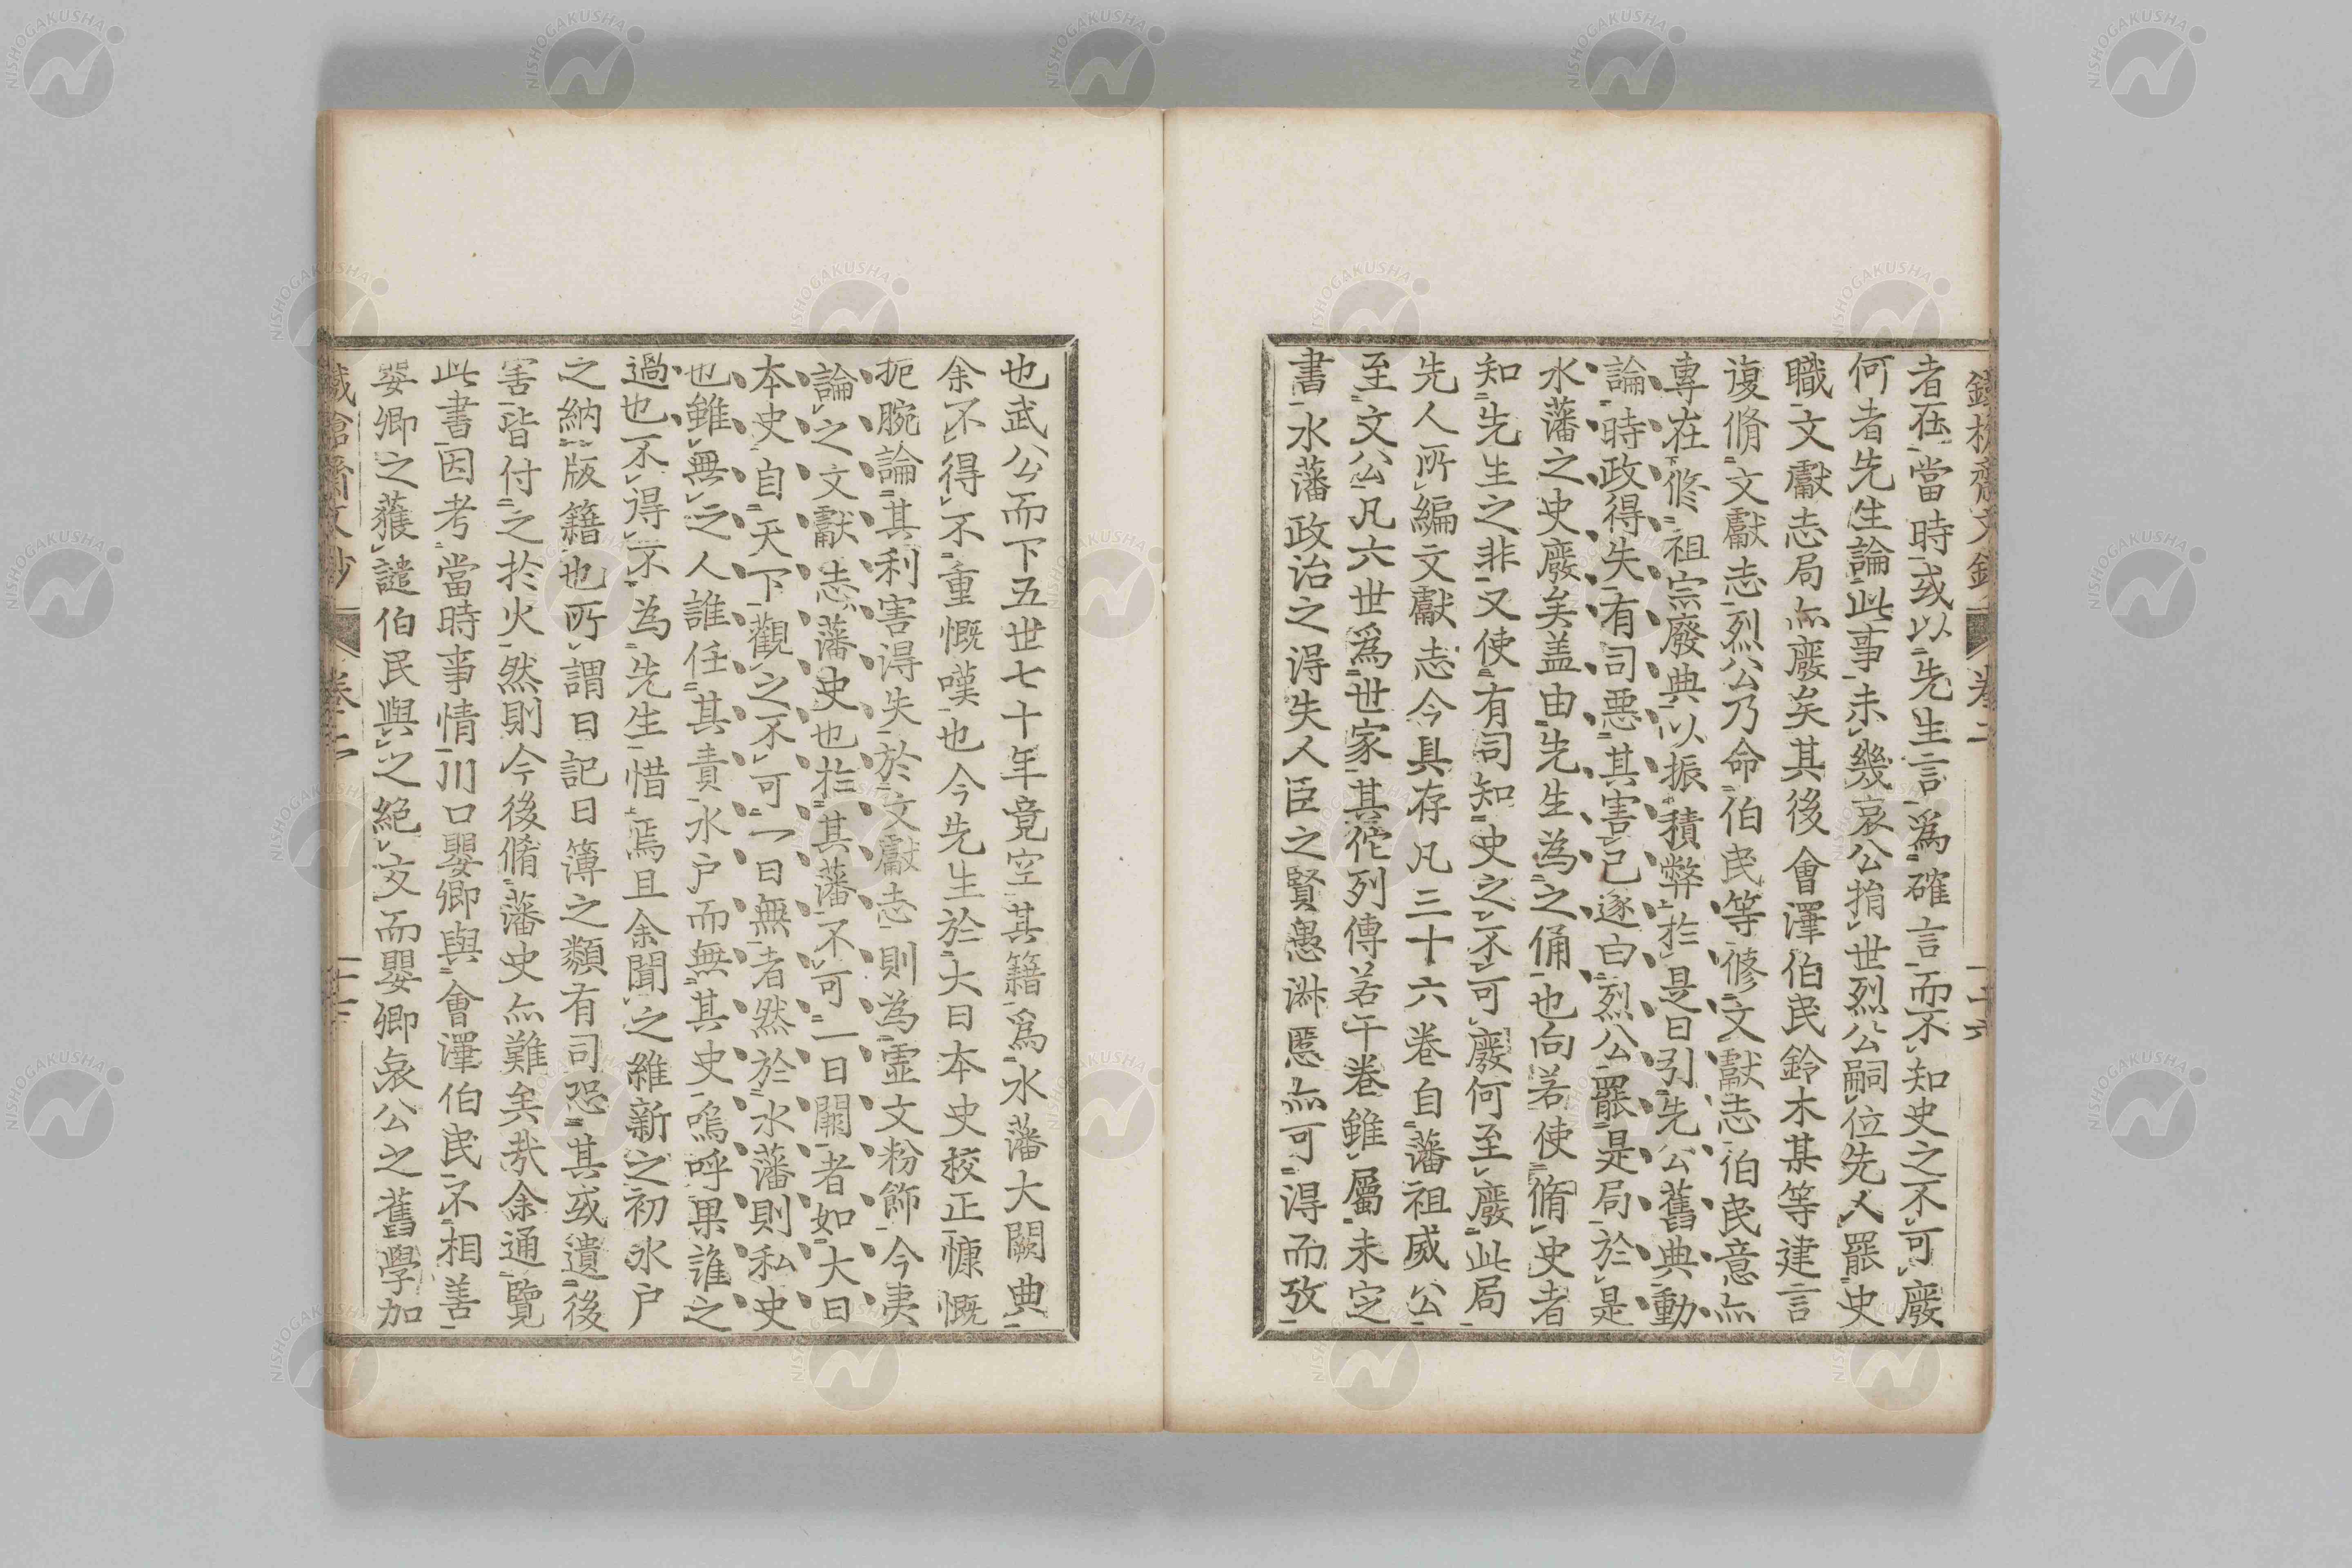 者在當時或以先生言爲確言而不知史之不可廢
何者先生論此事未幾哀公捐世烈公嗣位先人罷史
職文獻志局亦廢矣其後會澤伯民鈴木某等建言
復脩文獻志烈公乃命伯民等修文獻志伯民意亦
專在修祖宗廢典以振積弊於是曰引先公舊典動
論時政得失有司惡其害己遂白烈公罷是局於是
水藩之史廢矣盖由先生為之俑也向若使脩史者
知先生之非又使有司知史之不可廢何至廢此局
先人所編文獻志今具存凡三十六卷自藩祖威公
至文公凡六世爲世家其佗列傳若干卷雖屬未定
書水藩政治之得失人臣之賢愚淑慝亦可得而攷
也武公而下五世七十年竟空其籍爲水藩大闕典
余不得不重慨嘆也今先生於大日本史校正慷慨
扼腕論其利害得失於文獻志則為虛文粉飾今夷
論之文獻志藩史也於其藩不可一日闕者如大日
本史自天下觀之不可一日無者然於水藩則私史
也雖無之人誰任其責水戶而無其史嗚呼果誰之
過也不得不為先生惜焉且余聞之維新之初水戶
之納版籍也所謂日記日簿之類有司恐其或遺後
害皆付之於火然則今後脩藩史亦難矣哉余通覽
此書因考當時事情川口嬰卿與會澤伯民不相善
嬰卿之獲譴伯民與之絕交而嬰卿哀公之舊學加
卷二
卷二
NISHOGAKUSHA